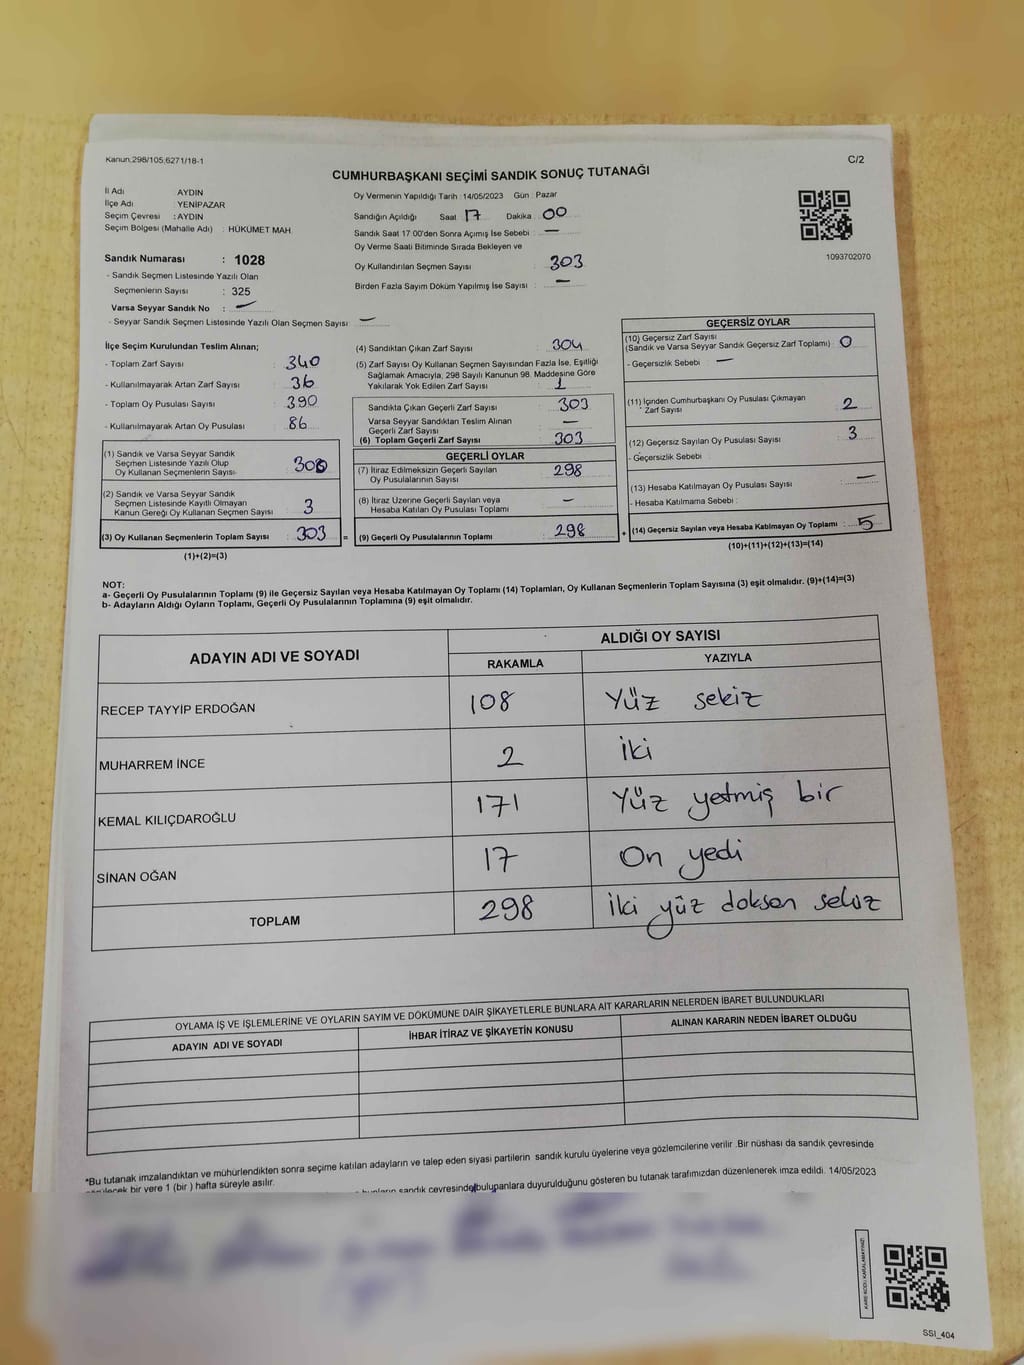 Kanun:298/105;6271/18-1
C/2
CUMHURBAŞKANI SEÇİMİ SANDIK SONUÇ TUTANAĞI
İl Adı : AYDIN
İlçe Adı : YENİPAZAR
Seçim Çevresi : AYDIN
Seçim Bölgesi (Mahalle Adı) : HÜKÜMET MAH.
Sandık Numarası : 1028
- Sandık Seçmen Listesinde Yazılı Olan
Seçmenlerin Sayısı : 325
Varsa Seyyar Sandık No : —
- Seyyar Sandık Seçmen Listesinde Yazılı Olan Seçmen Sayısı : —
Oy Vermenin Yapıldığı Tarih : 14/05/2023 Gün : Pazar
Sandığın Açıldığı Saat 17 Dakika : 00
Sandık Saat 17:00'den Sonra Açımış İse Sebebi : —
Oy Verme Saati Bitiminde Sırada Bekleyen ve
Oy Kullandırılan Seçmen Sayısı : 303
Birden Fazla Sayım Döküm Yapılmış İse Sayısı : —
1093702070
İlçe Seçim Kurulundan Teslim Alınan;
- Toplam Zarf Sayısı : 340
- Kullanılmayarak Artan Zarf Sayısı : 36
- Toplam Oy Pusulası Sayısı : 390
- Kullanılmayarak Artan Oy Pusulası : 86
(1) Sandık ve Varsa Seyyar Sandık
Seçmen Listesinde Yazılı Olup
Oy Kullanan Seçmenlerin Sayısı : 300
(2) Sandık ve Varsa Seyyar Sandık
Seçmen Listesinde Kayıtlı Olmayan
Kanun Gereği Oy Kullanan Seçmen Sayısı : 3
(3) Oy Kullanan Seçmenlerin Toplam Sayısı : 303 =
(1)+(2)=(3)
(4) Sandıktan Çıkan Zarf Sayısı : 304
(5) Zarf Sayısı Oy Kullanan Seçmen Sayısından Fazla İse, Eşitliği
Sağlamak Amacıyla, 298 Sayılı Kanunun 98. Maddesine Göre
Yakılarak Yok Edilen Zarf Sayısı : 1
Sandıkta Çıkan Geçerli Zarf Sayısı : 303
Varsa Seyyar Sandıktan Teslim Alınan
Geçerli Zarf Sayısı : —
(6) Toplam Geçerli Zarf Sayısı : 303
GEÇERLİ OYLAR
(7) İtiraz Edilmeksizin Geçerli Sayılan
Oy Pusulalarının Sayısı : 298
(8) İtiraz Üzerine Geçerli Sayılan veya
Hesaba Katılan Oy Pusulası Toplamı : —
(9) Geçerli Oy Pusulalarının Toplamı : 298 +
GEÇERSİZ OYLAR
(10) Geçersiz Zarf Sayısı
(Sandık ve Varsa Seyyar Sandık Geçersiz Zarf Toplamı) : 0
- Geçersizlik Sebebi : —
(11) İçinden Cumhurbaşkanı Oy Pusulası Çıkmayan
Zarf Sayısı : 2
(12) Geçersiz Sayılan Oy Pusulası Sayısı : 3
- Geçersizlik Sebebi :
(13) Hesaba Katılmayan Oy Pusulası Sayısı : —
- Hesaba Katılmama Sebebi :
(14) Geçersiz Sayılan veya Hesaba Katılmayan Oy Toplamı : 5
(10)+(11)+(12)+(13)=(14)
NOT:
a- Geçerli Oy Pusulalarının Toplamı (9) ile Geçersiz Sayılan veya Hesaba Katılmayan Oy Toplamı (14) Toplamları, Oy Kullanan Seçmenlerin Toplam Sayısına (3) eşit olmalıdır. (9)+(14)=(3)
b- Adayların Aldığı Oyların Toplamı, Geçerli Oy Pusulalarının Toplamına (9) eşit olmalıdır.
ADAYIN ADI VE SOYADI
ALDIĞI OY SAYISI
RAKAMLA YAZIYLA
RECEP TAYYİP ERDOĞAN 108 Yüz sekiz
MUHARREM İNCE 2 İki
KEMAL KILIÇDAROĞLU 171 Yüz yetmiş bir
SİNAN OĞAN 17 On yedi
TOPLAM 298 İki yüz doksan sekiz
OYLAMA İŞ VE İŞLEMLERİNE VE OYLARIN SAYIM VE DÖKÜMÜNE DAİR ŞİKAYETLERLE BUNLARA AİT KARARLARIN NELERDEN İBARET BULUNDUKLARI
ADAYIN ADI VE SOYADI İHBAR İTİRAZ VE ŞİKAYETİN KONUSU ALINAN KARARIN NEDEN İBARET OLDUĞU
*Bu tutanak imzalandıktan ve mühürlendikten sonra seçime katılan adayların ve talep eden siyasi partilerin sandık kurulu üyelerine veya gözlemcilerine verilir .Bir nüshası da sandık çevresinde
bir yere 1 (bir ) hafta süreyle asılır.
sandık çevresinde bulunanlara duyurulduğunu gösteren bu tutanak tarafımızdan düzenlenerek imza edildi. 14/05/2023
KARE KODU KARALAMAYINIZ!
SSI_404